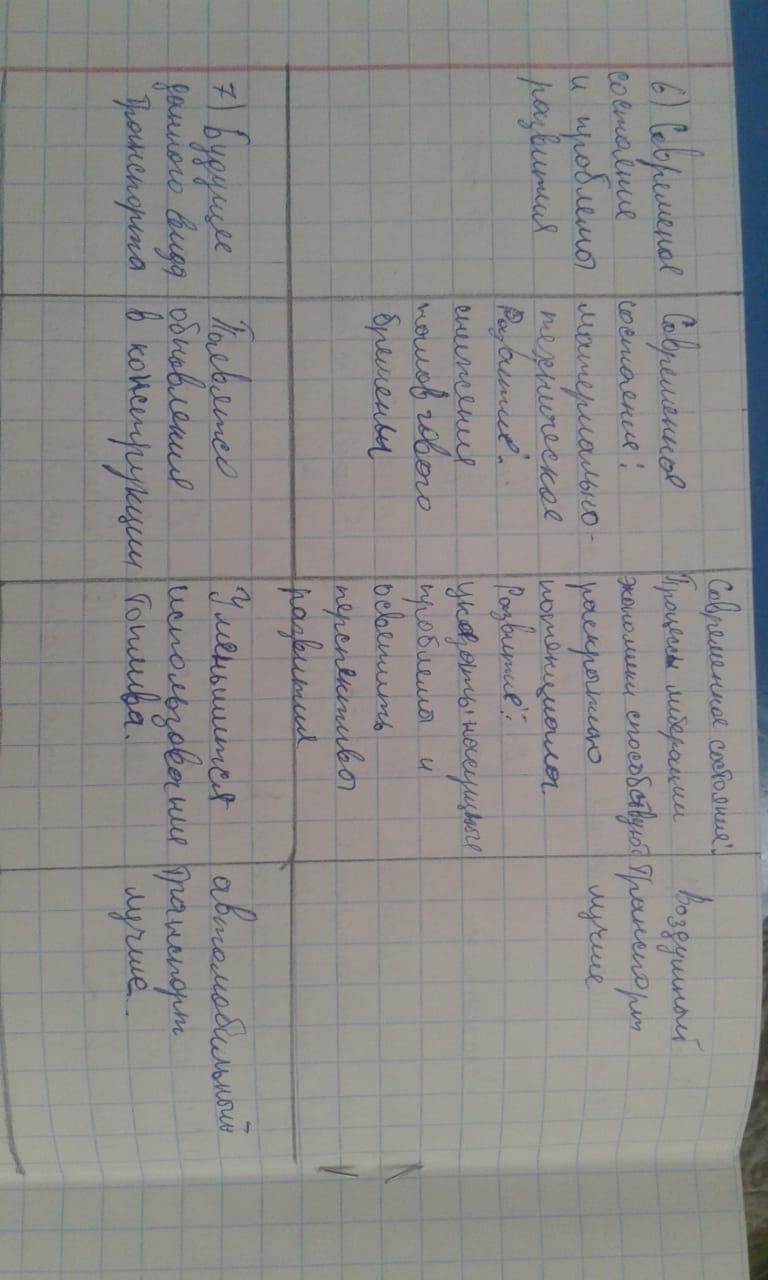 6) Современое
состаение
и проблемы
развития
Современное
состаение:
материально-
техническое
Развитие:
снижение
налогового
бремены
Современное состояние:
Процессы либерации
экономеки способствуют
раскрытию
потенциала.
Развитие:
указать насущные
проблемы и
осветить
перспективы
развития
Воздушный
Транспорт
лучше
7) Будущее
данного вида
Транспорта
Паевятся
обновления
в конструкции
Уменьшится
использование
Топлива.
автомобильный
Транспорт
лучше.